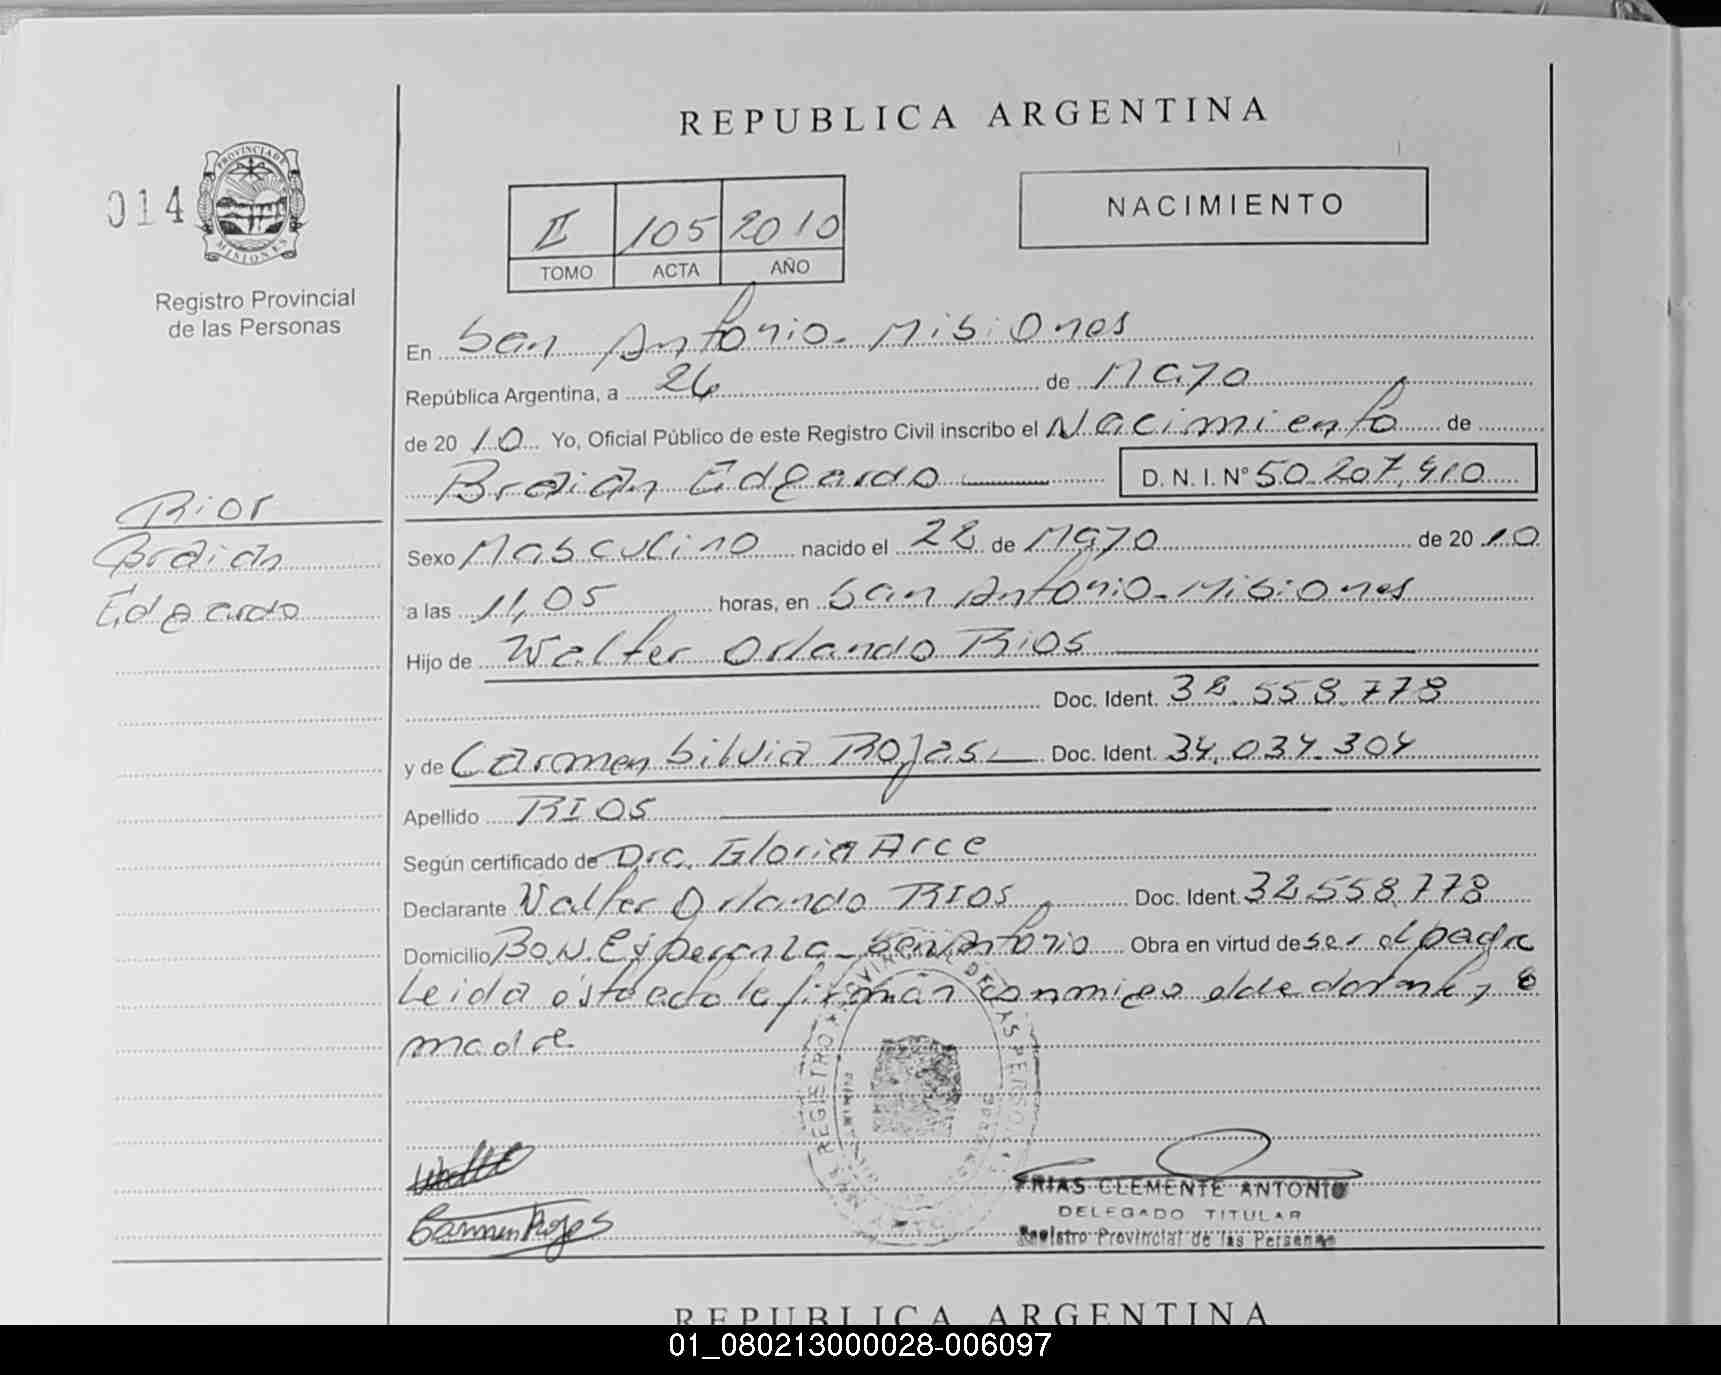 REPUBLICA ARGENTINA
014
PROVINCIA DE
MISIONES
Registro Provincial
de las Personas
II 105 2010
TOMO ACTA AÑO
NACIMIENTO
En San Antonio - Misiones
República Argentina, a 26 de Mayo
de 20 10 Yo, Oficial Público de este Registro Civil inscribo el Nacimiento de
Braian Edgardo D. N. I. N° 50.207.410
Rios
Braian
Edgardo
Sexo Masculino nacido el 22 de Mayo de 20 10
a las 11,05 horas, en San Antonio - Misiones
Hijo de Walter Orlando Rios
Doc. Ident. 32.558.778
y de Carmen Silvia Rojas Doc. Ident. 34.034.304
Apellido RIOS
Según certificado de Dra. Gloria Arce
Declarante Walter Orlando RIOS Doc. Ident. 32.558.778
Domicilio Bo. N. Esperanza - San Antonio Obra en virtud de ser el padre
Leida esta acta la firman conmigo el declarante y
madre
Carmen Rojas
FRIAS CLEMENTE ANTONIO
DELEGADO TITULAR
Registro Provincial de las Personas
REPUBLICA ARGENTINA
01_080213000028-006097